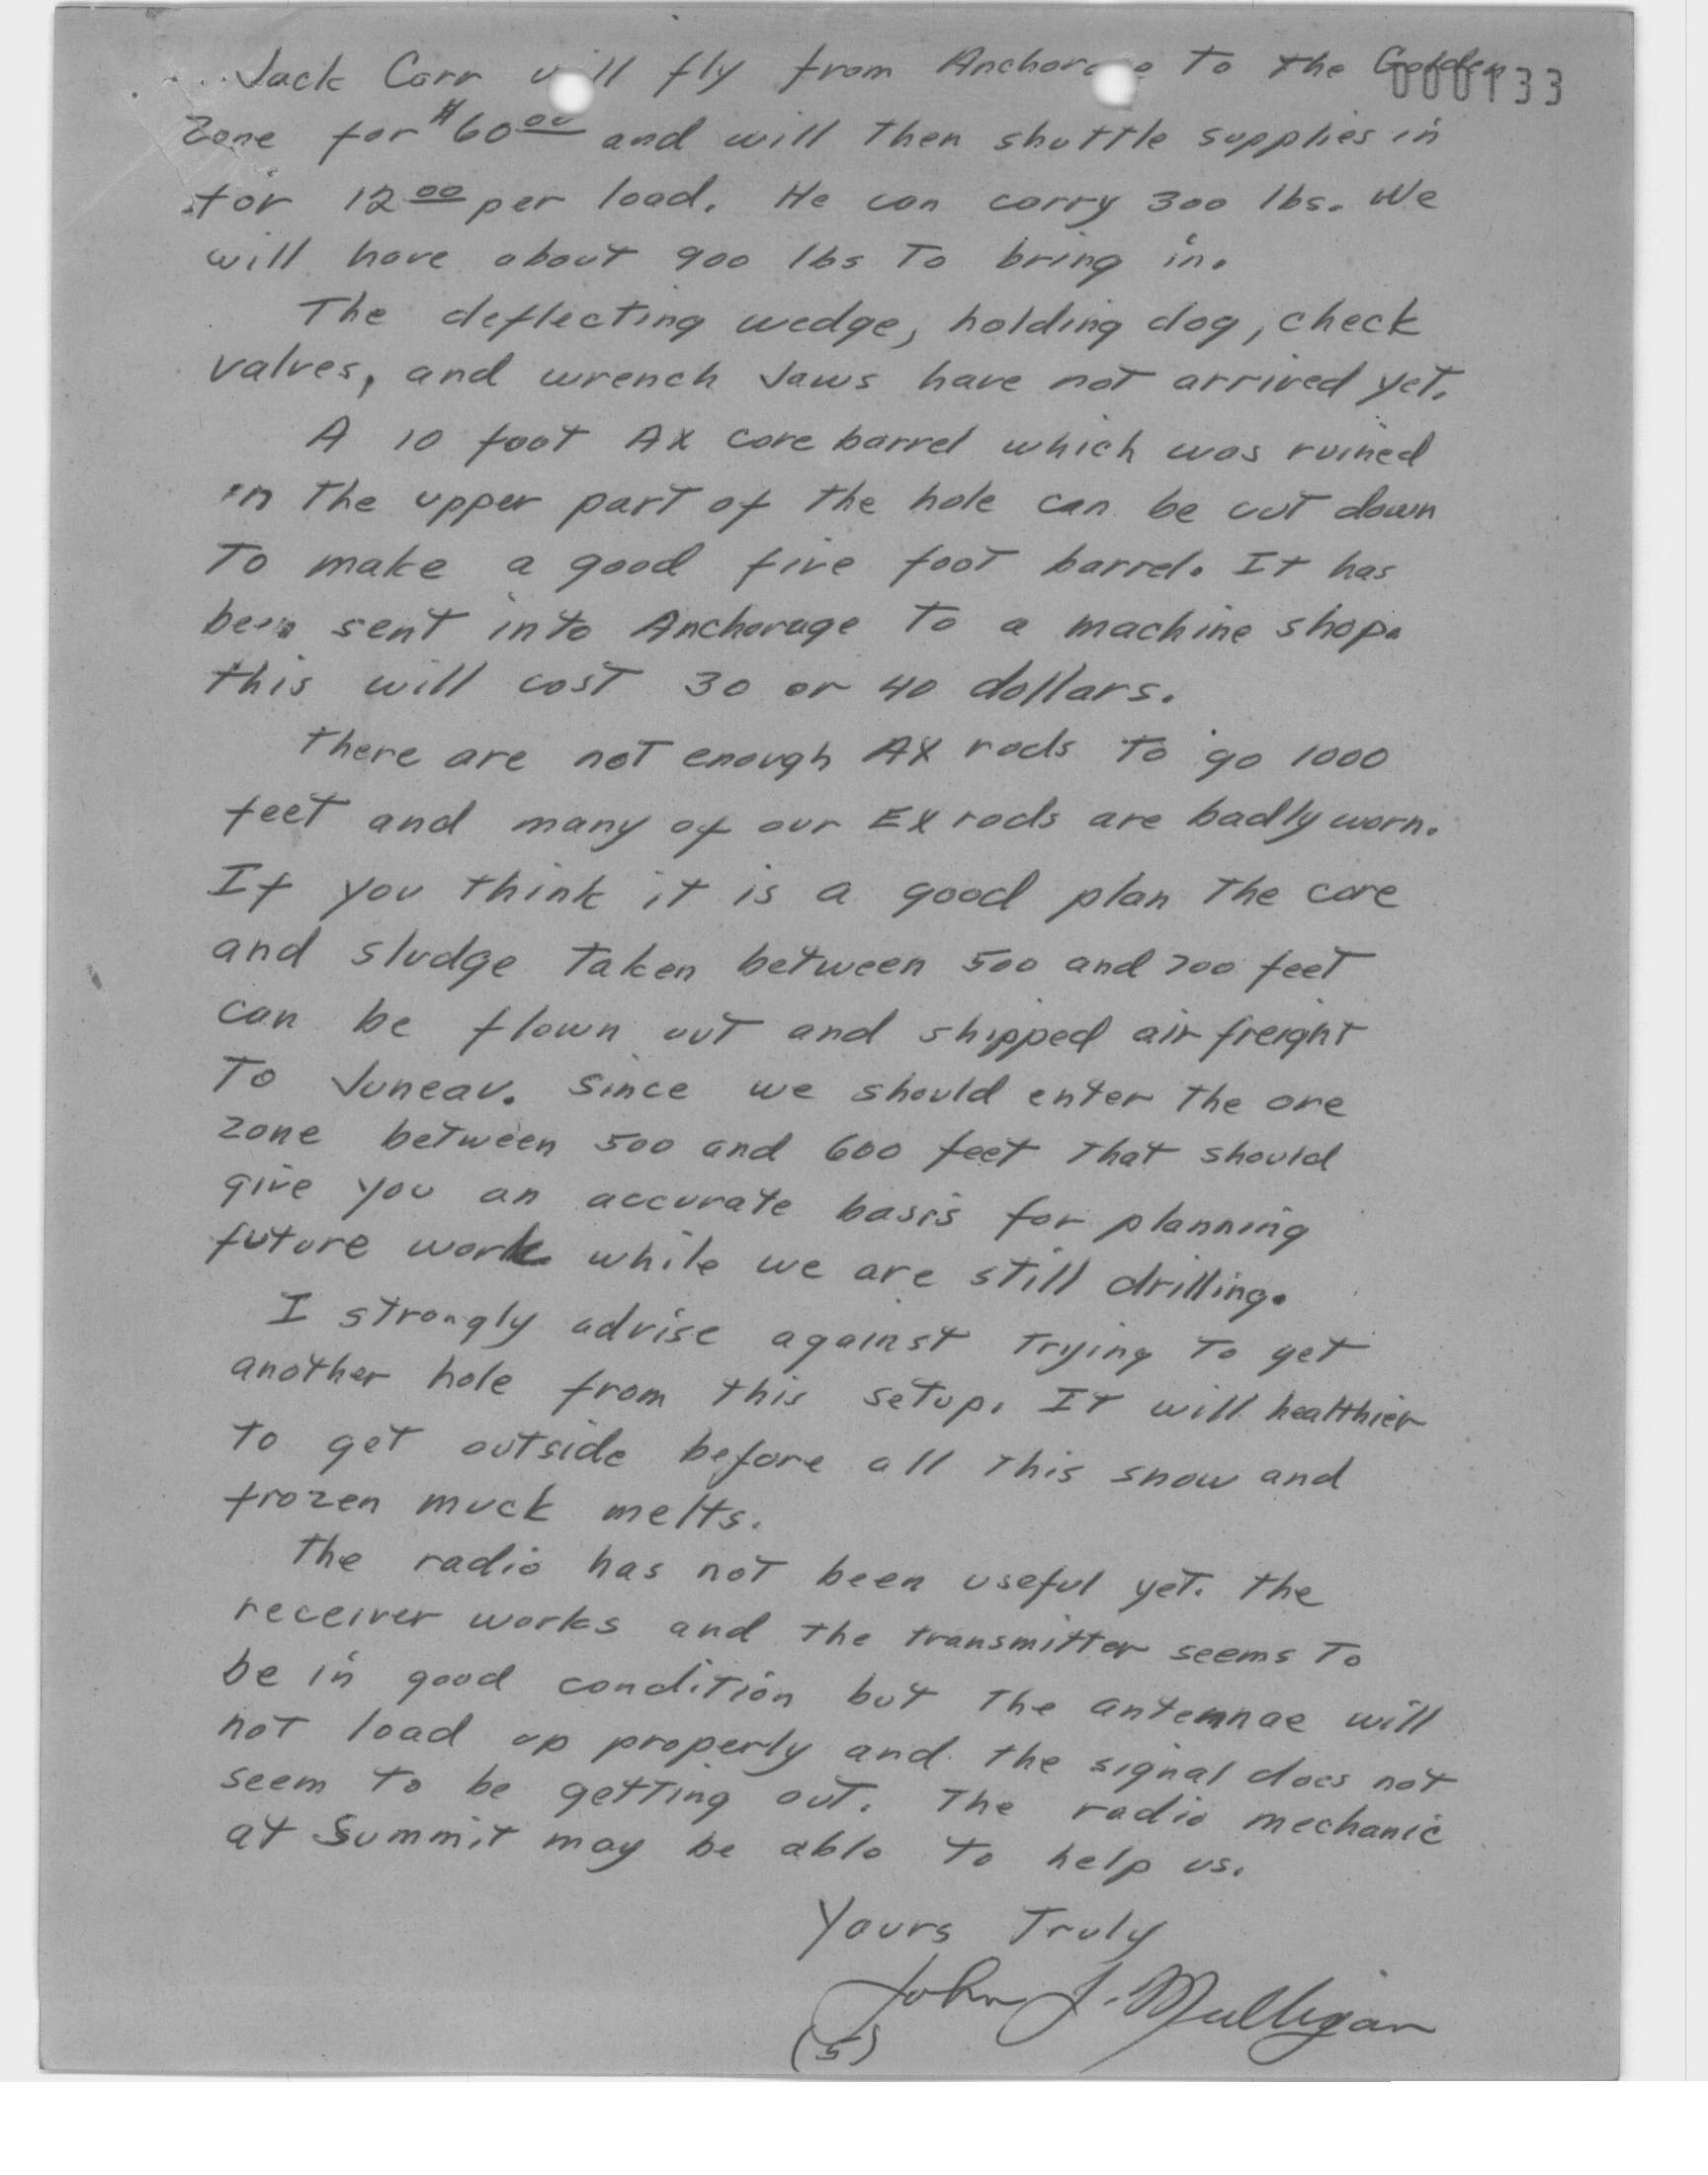 Jack Carr will fly from Anchorage to the Golden
000133
Zone for $60.00 and will then shuttle supplies in
for 12.00 per load. He can carry 300 lbs. We
will have about 900 lbs to bring in.
The deflecting wedge, holding dog, check
valves, and wrench Jaws have not arrived yet.
A 10 foot AX core barrel which was ruined
in the upper part of the hole can be cut down
to make a good five foot barrel. It has
been sent into Anchorage to a machine shop.
this will cost 30 or 40 dollars.
there are not enough AX rods to go 1000
feet and many of our EX rods are badly worn.
If you think it is a good plan the core
and sludge taken between 500 and 700 feet
can be flown out and shipped air freight
to Juneau. Since we should enter the ore
zone between 500 and 600 feet that should
give you an accurate basis for planning
future work while we are still drilling.
I strongly advise against trying to get
another hole from this setup. It will healthier
to get outside before all this snow and
frozen muck melts.
The radio has not been useful yet. the
receiver works and the transmitter seems to
be in good condition but the antemnae will
not load up properly and the signal does not
seem to be getting out. The radio mechanic
at Summit may be able to help us.
Yours Truly
John J. Mulligan
(5)